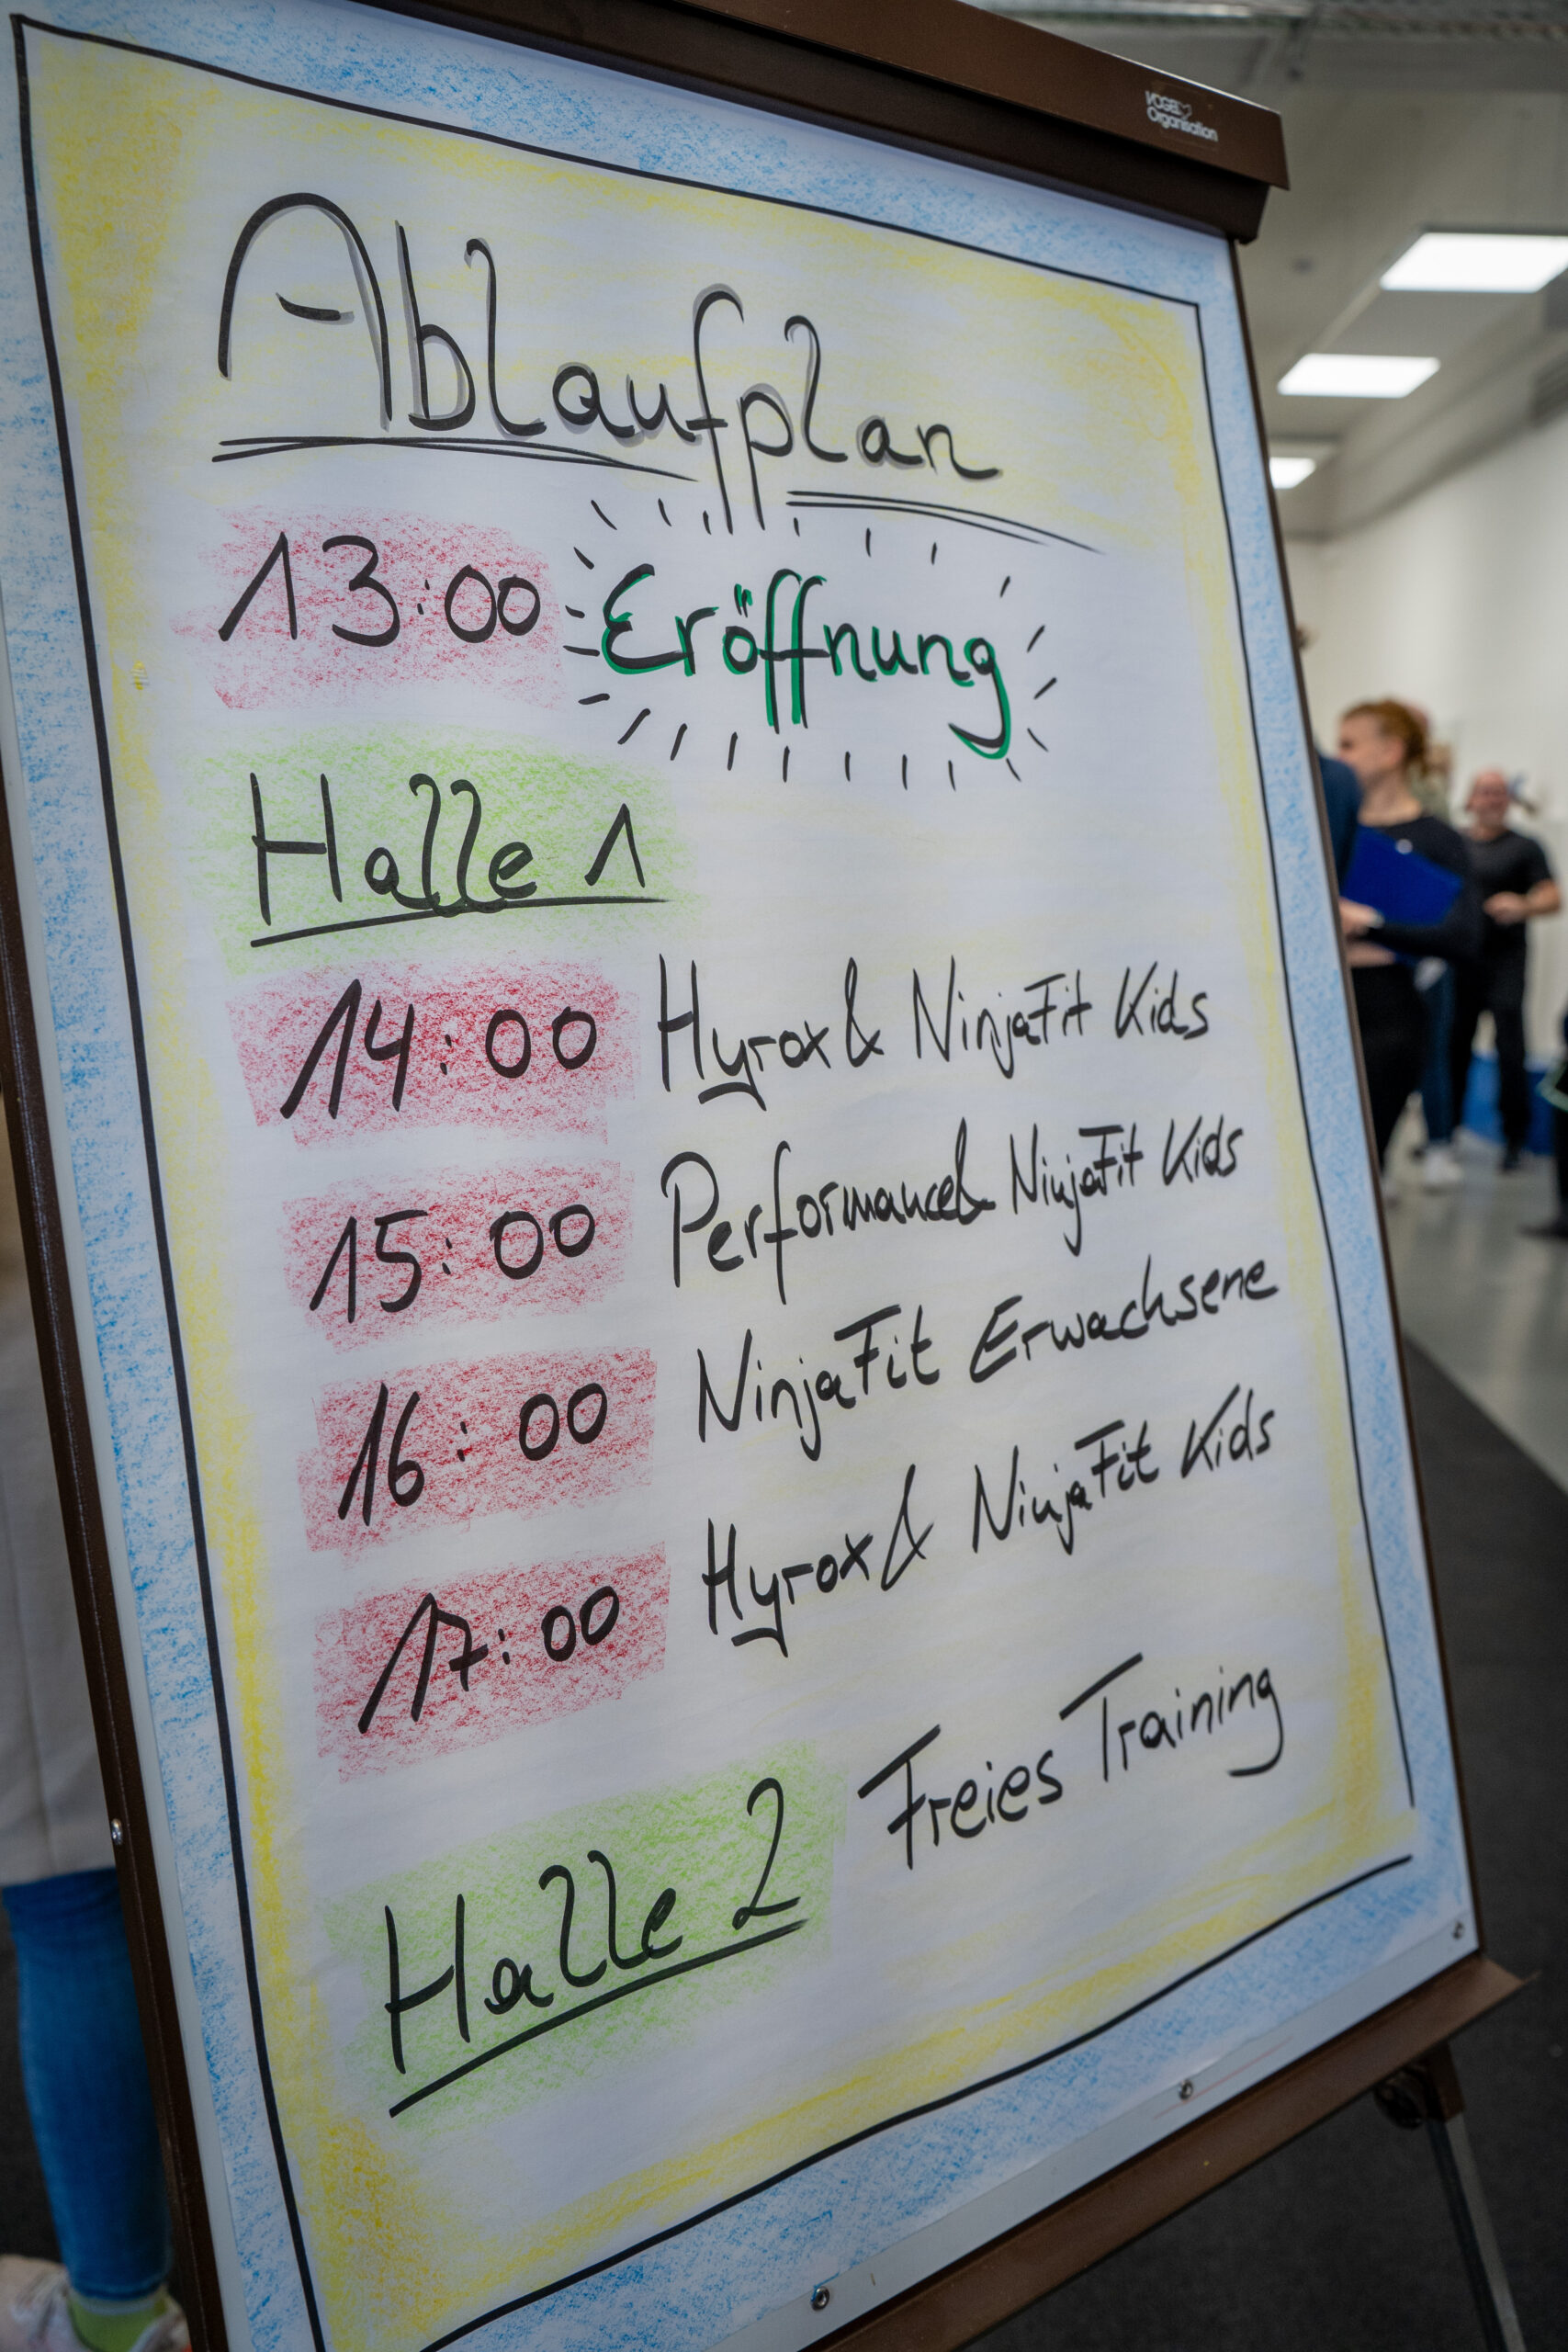 VOGEL
Organisation
Ablaufplan
13:00 Eröffnung
Halle 1
14:00 Hyrox & NinjaFit Kids
15:00 Performance & NinjaFit Kids
16:00 NinjaFit Erwachsene
17:00 Hyrox & NinjaFit Kids
Halle 2 Freies Training